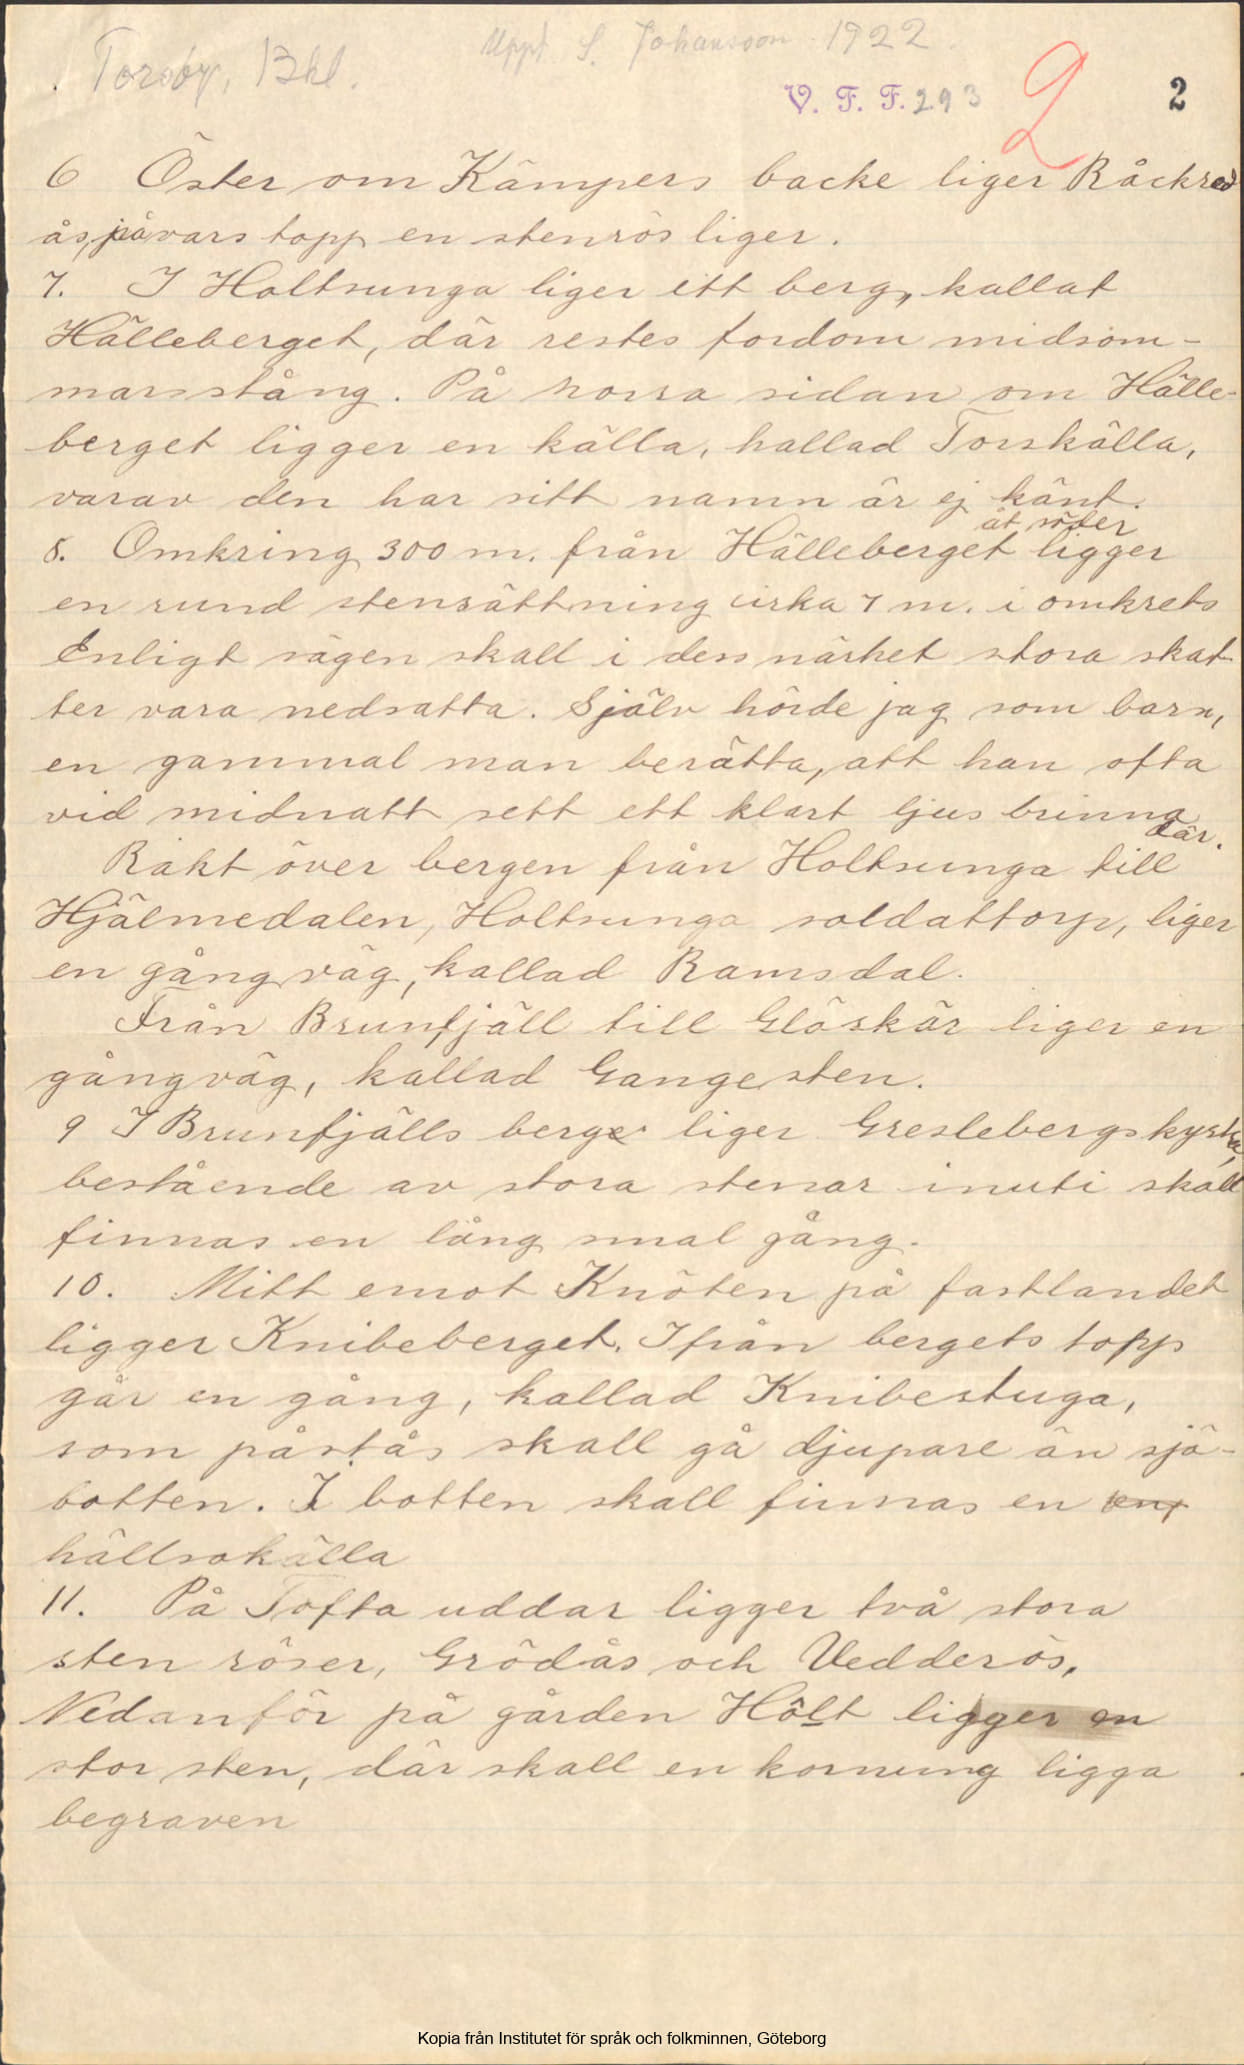 Torsby, Bhl.
Uppt. S. Johansson 1922.
V. F. F. 293
2
2
6 Öster om Kämpers backe liger Råckred
ås, påvars topp en stenrös liger.
7. I Holtsunga liger ett berg, kallat
Hälleberget, där restes fordom midsom-
marsstång. På norra sidan om Hälle-
berget ligger en källa, hallad Torskälla,
varav den har sitt namn är ej känt.
åt söder
8. Omkring 300 m. från Hälleberget ligger
en rund stensättning cirka 7 m. i omkrets
Enligt sägen skall i dess närhet stora skat-
ter vara nedsatta. Själv hörde jag som barn,
en gammal man berätta, att han ofta
vid midnatt sett ett klart ljus brinna
där.
Rakt över bergen från Holtsunga till
Hjälmedalen, Holtsunga soldattorp, liger
en gångväg, kallad Ramsdal.
Från Brunfjäll till Glöskär liger en
gångväg, kallad Gangesten.
9 I Brunfjälls berge liger Greslebergskyrka,
bestående av stora stenar inuti skall
finnas en lång smal gång.
10. Mitt emot Knöten på fastlandet
ligger Knibeberget. Ifrån bergets topp
går en gång, kallad Knibestuga,
som påstås skall gå djupare än sjö-
botten. I botten skall finnas en
hällsokälla
11. På Tofta uddar ligger två stora
sten röser, Grödås och Vedderös.
Nedanför på gården Hôlt ligger en
stor sten, där skall en kornung ligga
begraven
Kopia från Institutet för språk och folkminnen, Göteborg